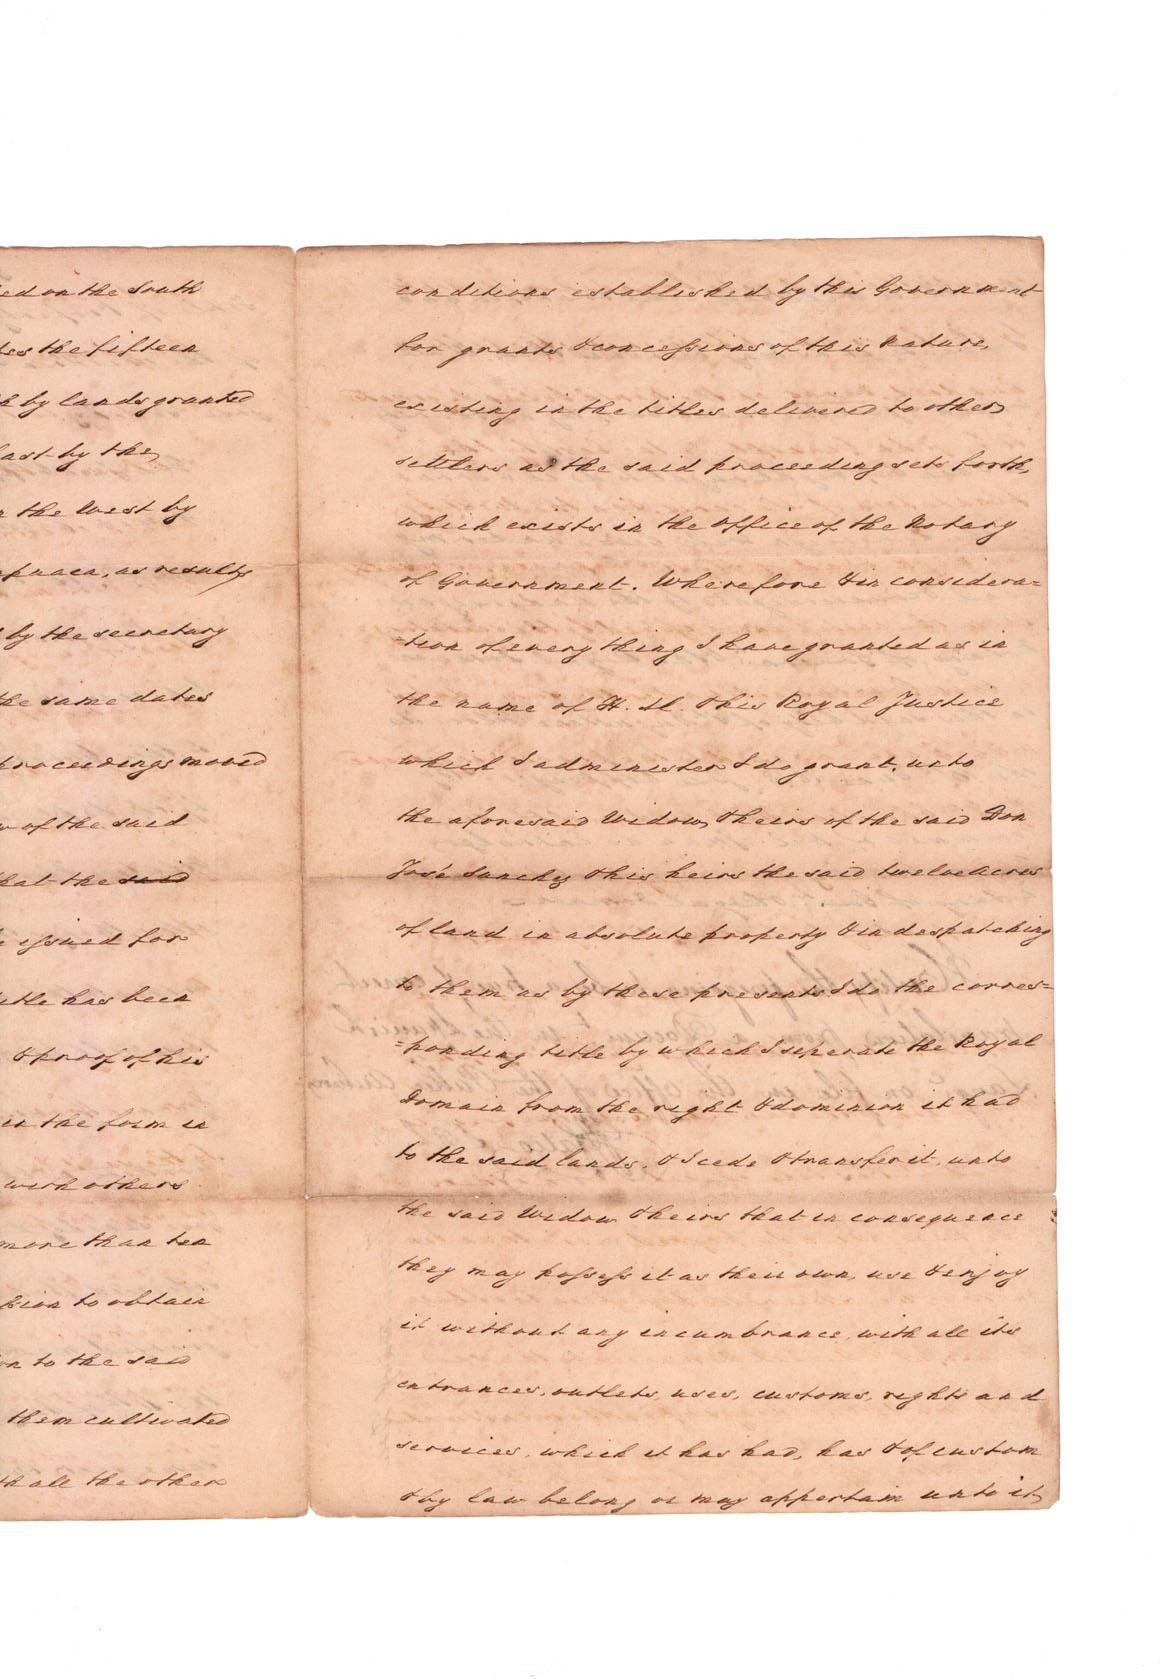 ed on the South
tes the fifteen
h by lands granted
ast by the
n the West by
puaca, as results
by the secretary
the same dates
proceedings moved
w of the said
hat the said
e issued for
itle has been
& proof of his
in the form in
with others
more than ten
sion to obtain
on to the said
them cultivated
th all the other
conditions established by this Government
for grants & concessions of this Nature,
existing in the titles delivered to other
settlers as the said proceeding sets forth,
which exists in the office of the Notary
of Government. Wherefore & in considera=
-tion of every thing I have granted as in
the name of H. M. & his Royal Justice
which I administer I do grant, unto
the aforesaid Widow, & heirs of the said Don
José Sanchez & his heirs the said twelve Acres
of land in absolute property & in despatching
to them as by these presents I do the corres=
=ponding title by which I seperate the Royal
Domain from the right & dominion it had
to the said lands, & I cede & transfer it, unto
the said Widow & heirs that in consequence
they may possess it as their own, use & enjoy
it without any incumbrance, with all its
entrances, outlets, uses, customs, rights and
services, which it has had, has & of custom
& by law belong or may appertain unto it,